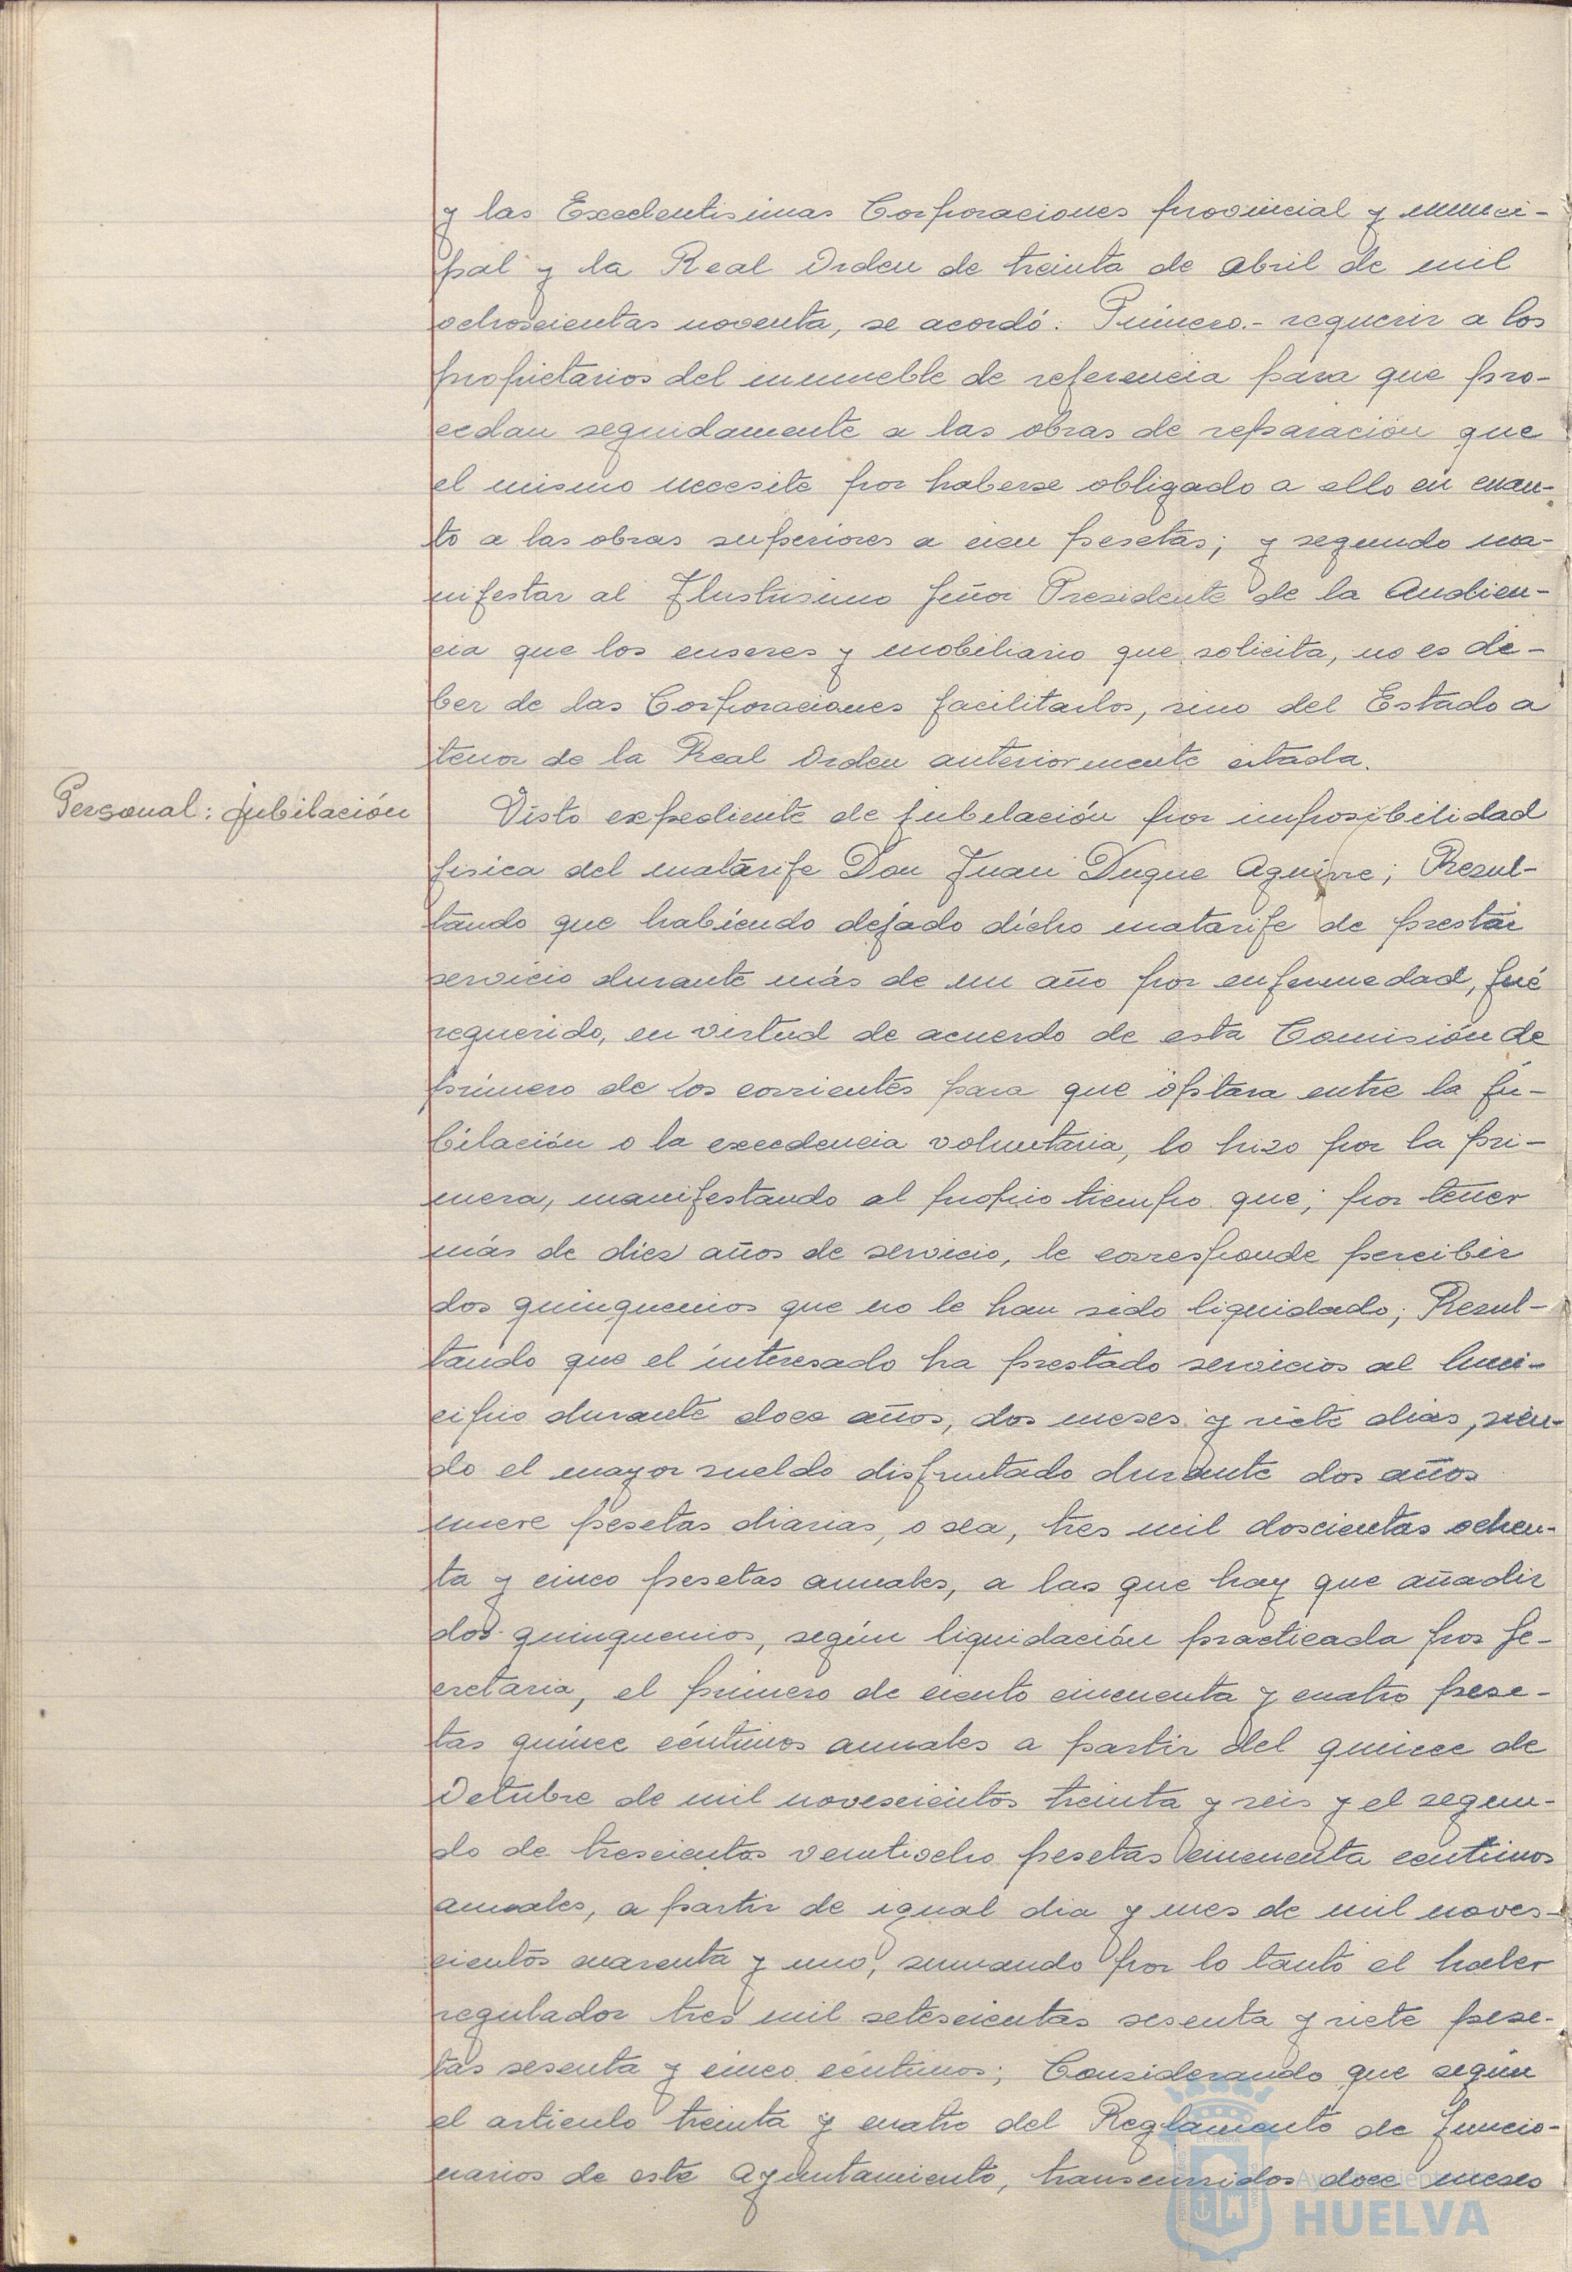 y las Excelentisimas Corporaciones provincial y munici-
pal y la Real Orden de treinta de abril de mil
ochoscientas noventa, se acordó: Primero.- requerir a los
propietarios del inmueble de referencia para que pro-
cedan seguidamente a las obras de reparación que
el mismo necesite por haberse obligado a ello en cuan-
to a las obras superiores a cien pesetas; y segundo ma-
nifestar al Ilustrisimo Señor Presidente de la Audien-
cia que los enseres y mobiliario que solicita, no es de-
ber de las Corporaciones facilitarlos, sino del Estado a
tenor de la Real Orden anteriormente citada.
Personal: jubilación
Visto expediente de jubilación por imposibilidad
fisica del matarife Don Juan Duque Aguirre; Resul-
tando que habiendo dejado dicho matarife de prestar
servicio durante más de un año por enfermedad, fué
requerido, en virtud de acuerdo de esta Comisión de
primero de los corrientes para que optara entre la ju-
bilación o la excedencia voluntaria, lo hizo por la pri-
mera, manifestando al propio tiempo que, por tener
más de diez años de servicio, le corresponde percibir
dos quinquenios que no le han sido liquidado; Resul-
tando que el interesado ha prestado servicios al Muni-
cipio durante doce años, dos meses y siete dias, sien-
do el mayor sueldo disfrutado durante dos años
nueve pesetas diarias, o sea, tres mil doscientas ochen-
ta y cinco pesetas anuales, a las que hay que añadir
dos quinquenios, según liquidación practicada por Se-
cretaria, el primero de ciento cincuenta y cuatro pese-
tas quince céntimos anuales a partir del quince de
Octubre de mil novescientos treinta y seis y el segun-
do de trescientos veintiocho pesetas cincuenta centimos
anuales, a partir de igual dia y mes de mil noves-
cientos cuarenta y uno, sumando por lo tanto el haber
regulador tres mil setescientas sesenta y siete pese-
tas sesenta y cinco céntimos; Considerando que según
el articulo treinta y cuatro del Reglamento de Funcio-
narios de este Ayuntamiento, transcurridos doce meses
Ayuntamiento de
HUELVA